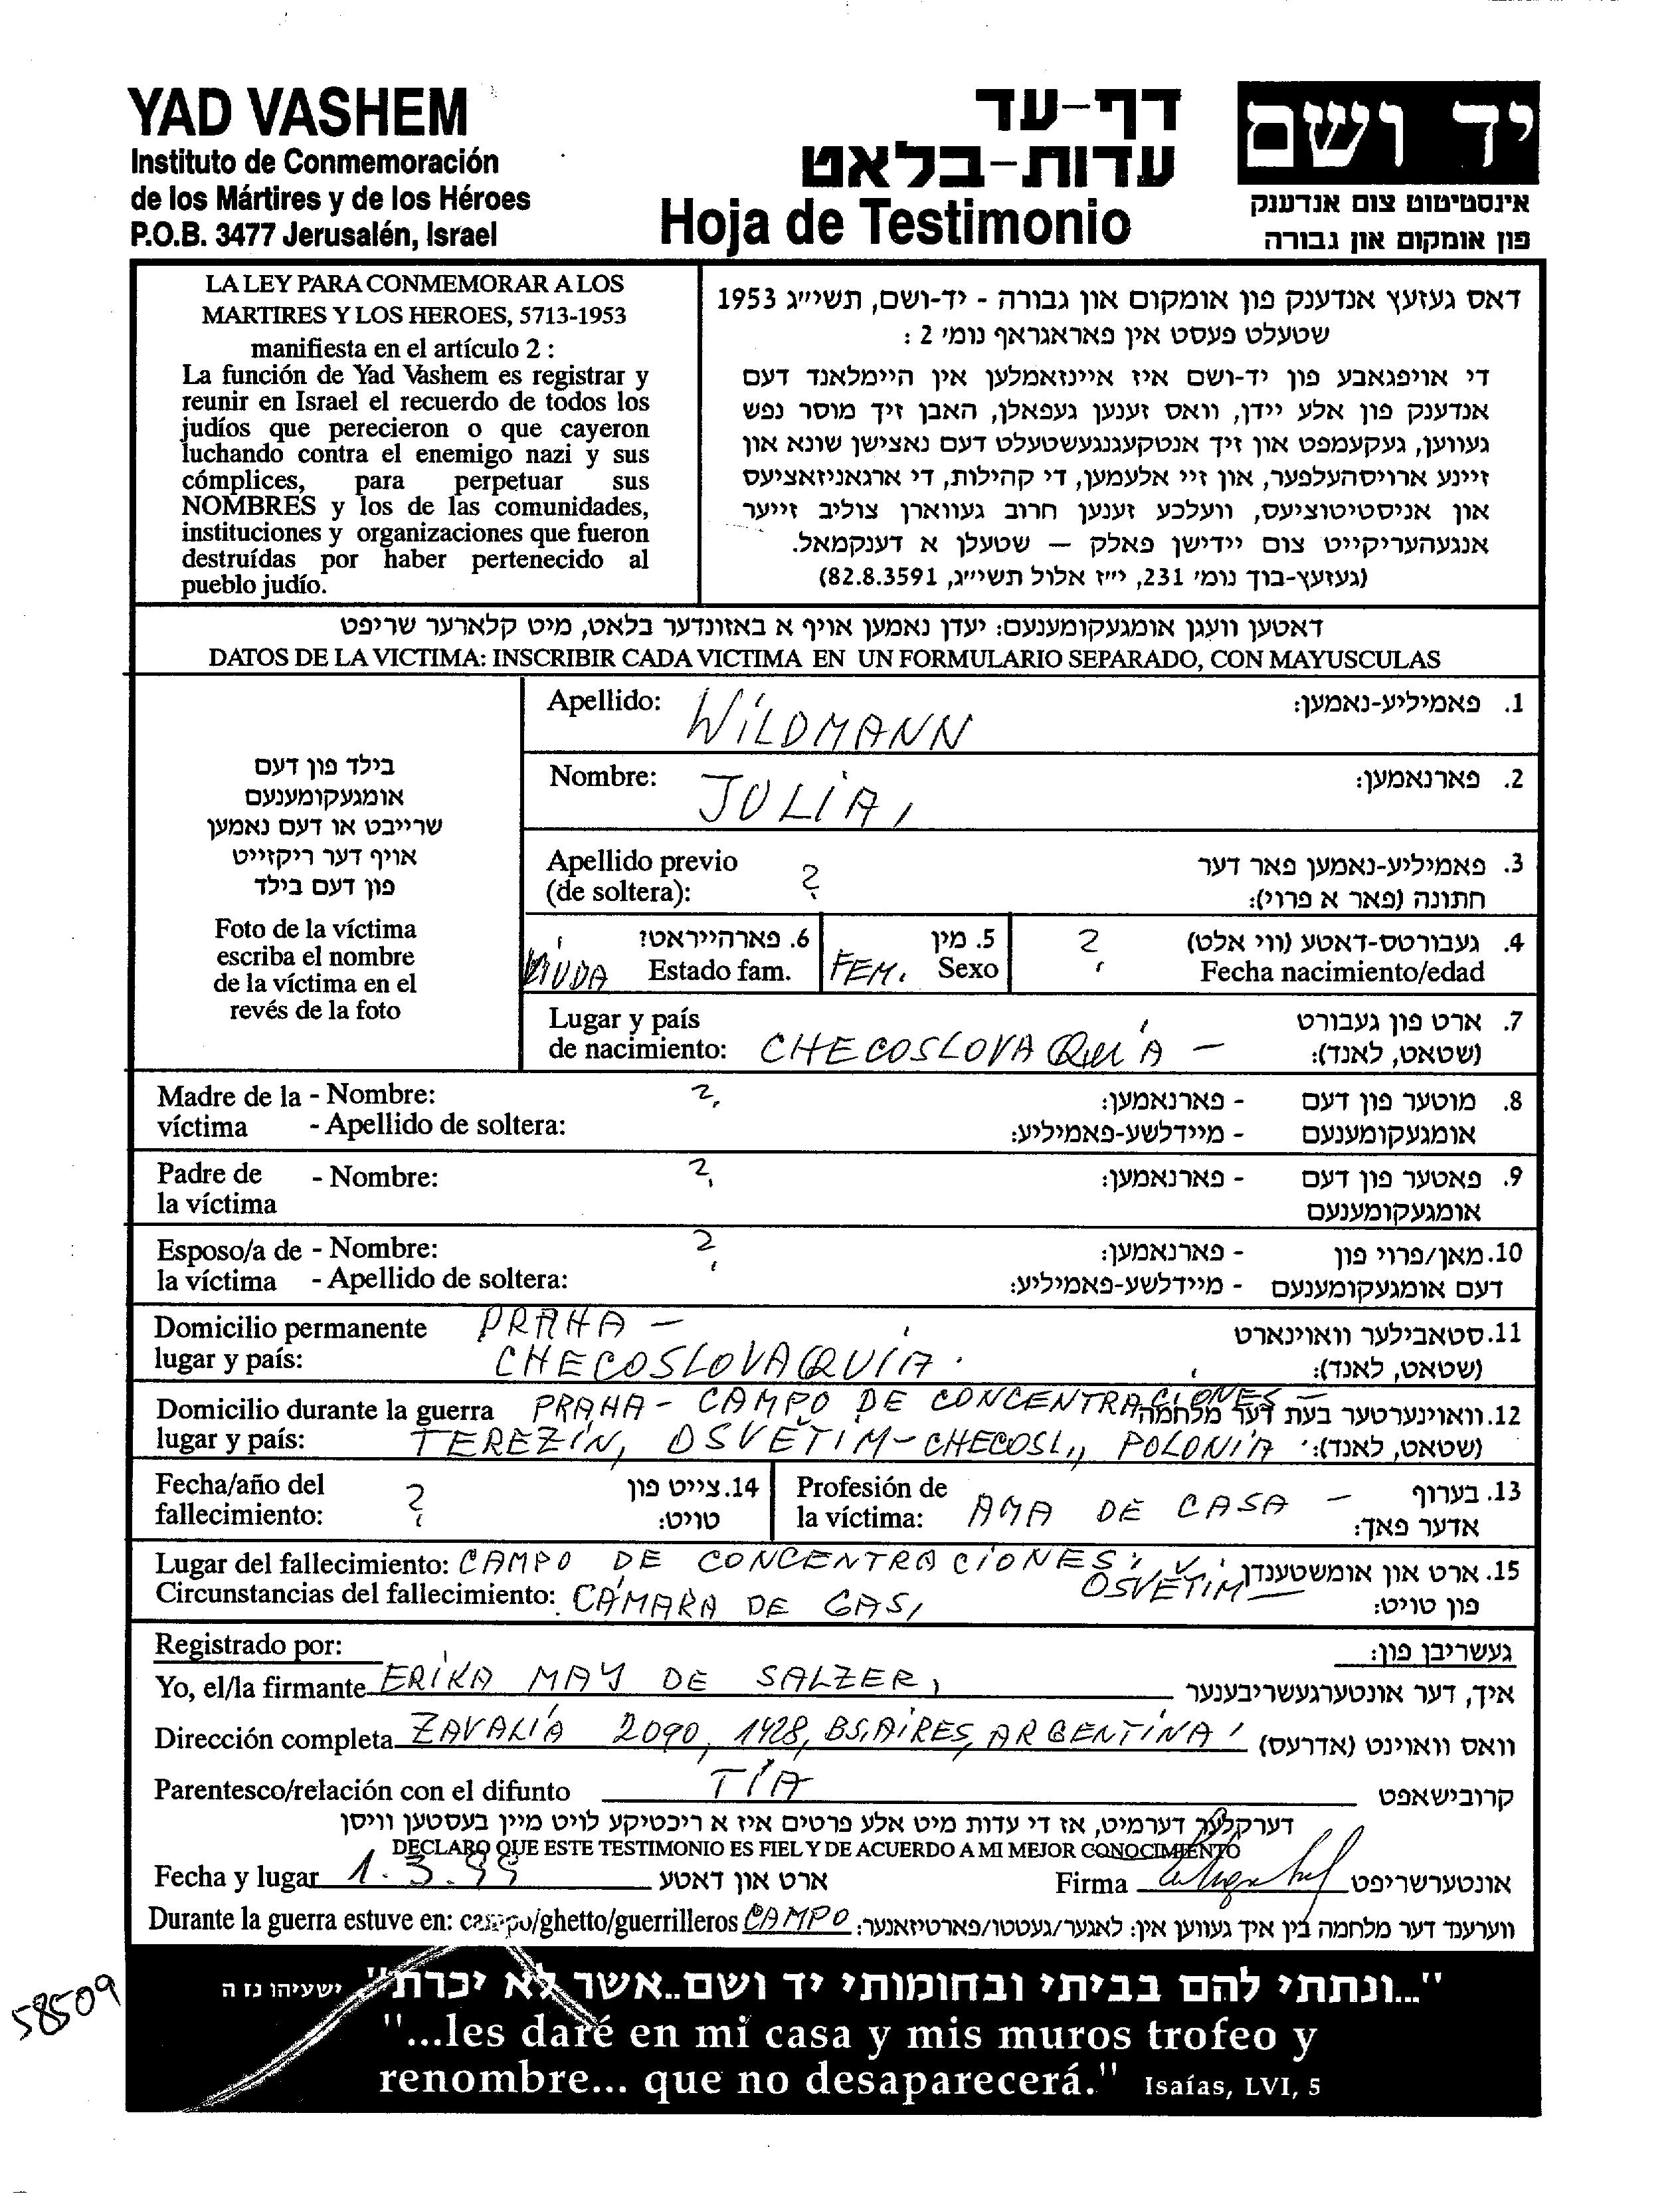 YAD VASHEM
Instituto de Conmemoración
de los Mártires y de los Héroes
P.O.B. 3477 Jerusalén, Israel
דף-עד
עדות-בלאט
Hoja de Testimonio
יד ושם
אינסטיטוט צום אנדענק
פון אומקום און גבורה
LA LEY PARA CONMEMORAR A LOS
MARTIRES Y LOS HEROES, 5713-1953
manifiesta en el artículo 2 :
La función de Yad Vashem es registrar y
reunir en Israel el recuerdo de todos los
judíos que perecieron o que cayeron
luchando contra el enemigo nazi y sus
cómplices, para perpetuar sus
NOMBRES y los de las comunidades,
instituciones y organizaciones que fueron
destruídas por haber pertenecido al
pueblo judío.
דאס געזעץ אנדענק פון אומקום און גבורה - יד-ושם, תשי״ג 1953
שטעלט פעסט אין פאראגראף נומ׳ 2 :
די אויפגאבע פון יד-ושם איז איינזאמלען אין היימלאנד דעם
אנדענק פון אלע יידן, וואס זענען געפאלן, האבן זיך מוסר נפש
געווען, געקעמפט און זיך אנטקעגנגעשטעלט דעם נאצישן שונא און
זיינע ארויסהעלפער, און זיי אלעמען, די קהילות, די ארגאניזאציעס
און אניסטיטוציעס, וועלכע זענען חרוב געווארן צוליב זייער
אנגעהעריקייט צום יידישן פאלק — שטעלן א דענקמאל.
(געזעץ-בוך נומ׳ 231, י״ז אלול תשי״ג, 82.8.3591)
דאטען וועגן אומגעקומענעם: יעדן נאמען אויף א באזונדער בלאט, מיט קלארער שריפט
DATOS DE LA VICTIMA: INSCRIBIR CADA VICTIMA EN UN FORMULARIO SEPARADO, CON MAYUSCULAS
בילד פון דעם
אומגעקומענעם
שרייבט או דעם נאמען
אויף דער ריקזייט
פון דעם בילד
Foto de la víctima
escriba el nombre
de la víctima en el
revés de la foto
Apellido: WILDMANN 1. פאמיליע-נאמען:
Nombre: JULIA, 2. פארנאמען:
Apellido previo ? 3. פאמיליע-נאמען פאר דער
(de soltera): חתונה (פאר א פרוי):
6. פארהייראט? 5. מין ? 4. געבורטס-דאטע (ווי אלט)
VIUDA Estado fam. FEM. Sexo Fecha nacimiento/edad
Lugar y país 7. ארט פון געבורט
de nacimiento: CHECOSLOVAQUIA - (שטאט, לאנד):
Madre de la - Nombre: ? 8. מוטער פון דעם - פארנאמען:
víctima - Apellido de soltera: אומגעקומענעם - מיידלשע-פאמיליע:
Padre de - Nombre: ? 9. פאטער פון דעם - פארנאמען:
la víctima אומגעקומענעם
Esposo/a de - Nombre: ? 10. מאן/פרוי פון - פארנאמען:
la víctima - Apellido de soltera: דעם אומגעקומענעם - מיידלשע-פאמיליע:
Domicilio permanente PRAHA - 11. סטאבילער וואוינארט
lugar y país: CHECOSLOVAQUIA. (שטאט, לאנד):
Domicilio durante la guerra PRAHA - CAMPO DE CONCENTRACIONES - 12. וואוינערטער בעת דער מלחמה
lugar y país: TEREZÍN, OSVĚTIM - CHECOSL., POLONIA (שטאט, לאנד):
Fecha/año del ? 14. צייט פון Profesión de 13. בערוף
fallecimiento: טויט: la víctima: AMA DE CASA - אדער פאך:
Lugar del fallecimiento: CAMPO DE CONCENTRACIONES: OSVĚTIM - 15. ארט און אומשטענדן
Circunstancias del fallecimiento: CÁMARA DE GAS, פון טויט:
Registrado por: געשריבן פון:
Yo, el/la firmante ERIKA MAY DE SALZER, איך, דער אונטערגעשריבענער
Dirección completa ZAVALÍA 2090, 1428, BS.AIRES, ARGENTINA וואס וואוינט (אדרעס)
Parentesco/relación con el difunto TÍA קרובישאפט
דערקלער דערמיט, אז די עדות מיט אלע פרטים איז א ריכטיקע לויט מיין בעסטען וויסן
DECLARO QUE ESTE TESTIMONIO ES FIEL Y DE ACUERDO A MI MEJOR CONOCIMIENTO
Fecha y lugar 1.3.99 ארט און דאטע Firma אונטערשריפט
Durante la guerra estuve en: campo/ghetto/guerrilleros CAMPO ווערענד דער מלחמה בין איך געווען אין: לאגער/געטטו/פארטיזאנער:
58509
"...ונתתי להם בביתי ובחומותי יד ושם..אשר לא יכרת" ישעיהו נז ה
"...les daré en mi casa y mis muros trofeo y
renombre... que no desaparecerá." Isaías, LVI, 5